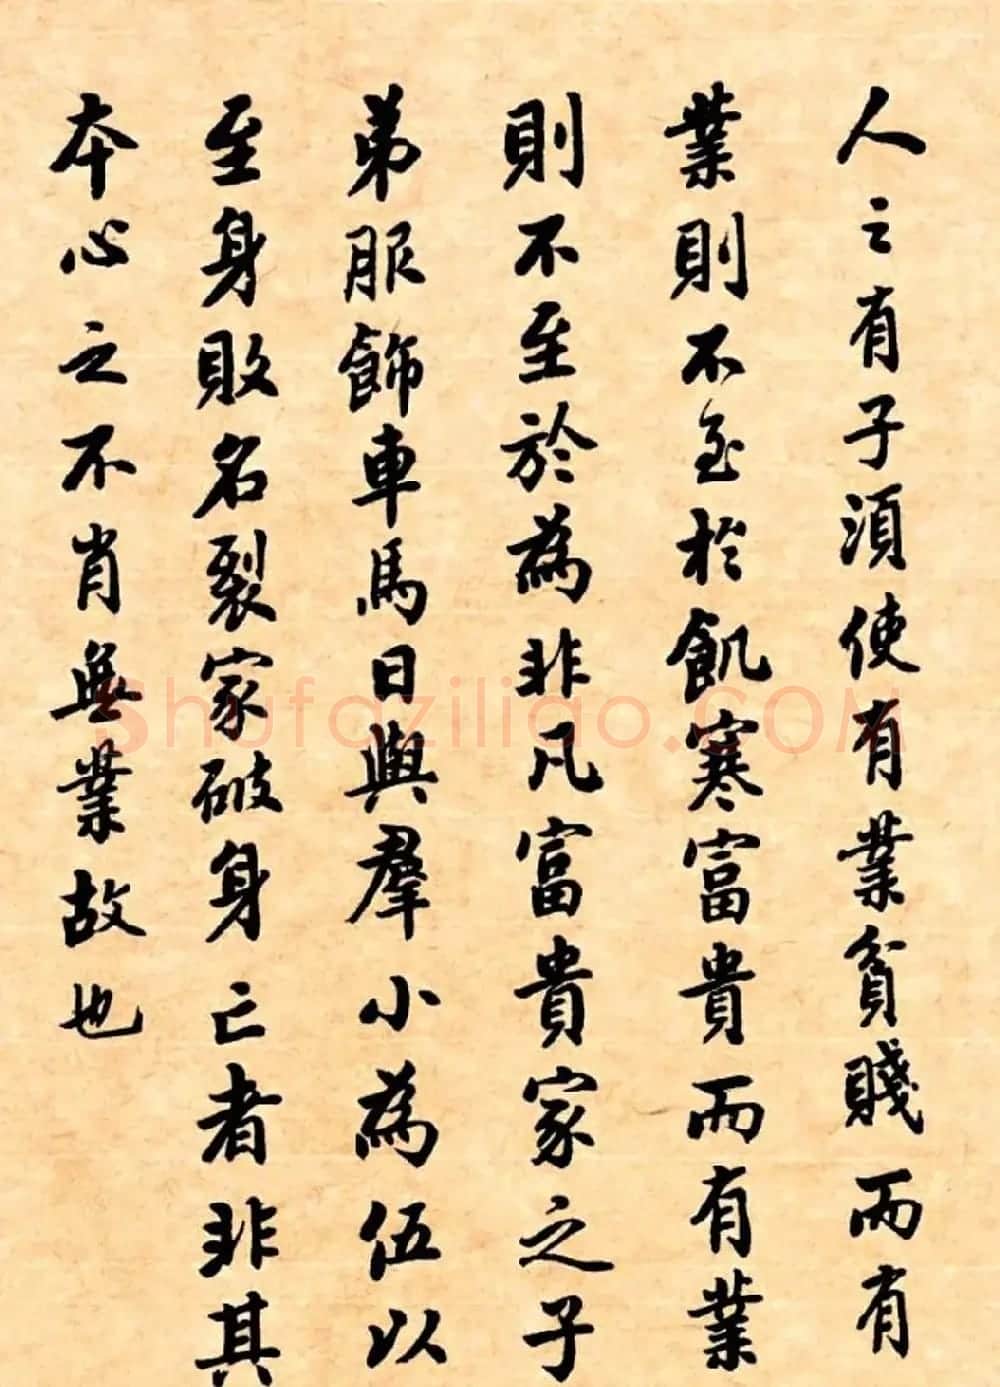 人之有子須使有業貧賤而有
業則不至於飢寒富貴而有業
則不至於為非凡富貴家之子
弟服飾車馬日與羣小為伍以
至身敗名裂家破身亡者非其
本心之不肖無業故也
Shufaziliao.COM